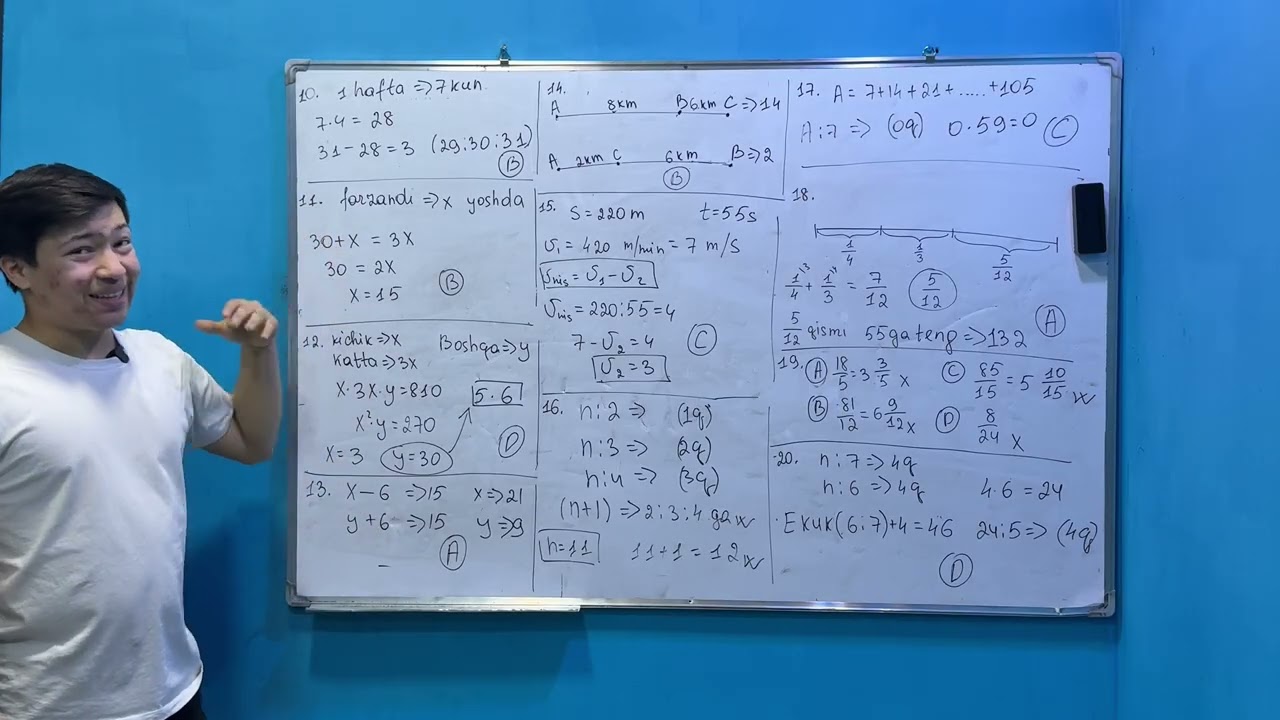 10. 1 hafta => 7 kun
7·4 = 28
31 - 28 = 3 (29;30;31)
B
11. farzandi => x yoshda
30+x = 3x
30 = 2x
x = 15
B
12. kichik => x Boshqa => y
katta => 3x
x·3x·y = 810
5·6
x²·y = 270
x = 3 y = 30
D
13. x - 6 => 15 x => 21
y + 6 => 15 y => 9
A
14.
A 8km B 6km C => 14
A 2km C 6km B => 2
B
15. S = 220 m t = 55 s
υ₁ = 420 m/min = 7 m/s
υnis = υ₁ - υ₂
υnis = 220:55 = 4
7 - υ₂ = 4
C
υ₂ = 3
16. n:2 => (1q)
n:3 => (2q)
n:4 => (3q)
(n+1) => 2;3;4 ga
n = 11 11+1 = 12
17. A = 7+14+21+.....+105
A:7 => (0q) 0·59 = 0 C
18.
1/4 1/3 5/12
1/4 ³ + 1/3 ⁴ = 7/12 5/12
A
5/12 qismi 55 ga teng => 132
19. A 18/5 = 3 3/5 x C 85/15 = 5 10/15
B 81/12 = 6 9/12 x D 8/24 x
20. n:7 => 4q
n:6 => 4q 4·6 = 24
Ekuk(6;7)+4 = 46 24:5 => (4q)
D